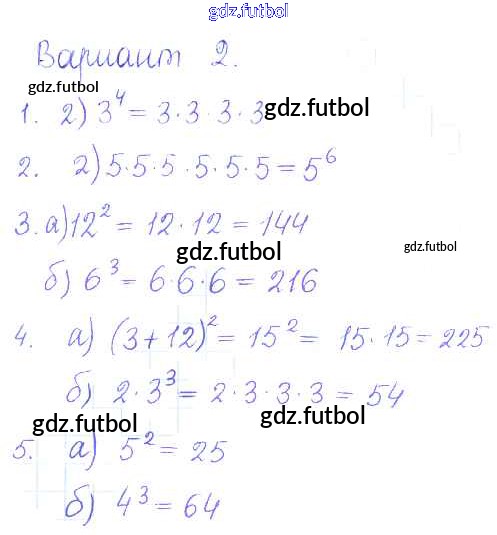 gdz.futbol
Вариант 2.
gdz.futbol
1. 2) 3⁴ = 3·3·3·3 gdz.futbol
2. 2) 5·5·5·5·5·5 = 5⁶
3. а) 12² = 12·12 = 144
gdz.futbol gdz.futbol
б) 6³ = 6·6·6 = 216
4. а) (3+12)² = 15² = 15·15 = 225
б) 2·3³ = 2·3·3·3 = 54
gdz.futbol gdz.futbol
5. а) 5² = 25
б) 4³ = 64